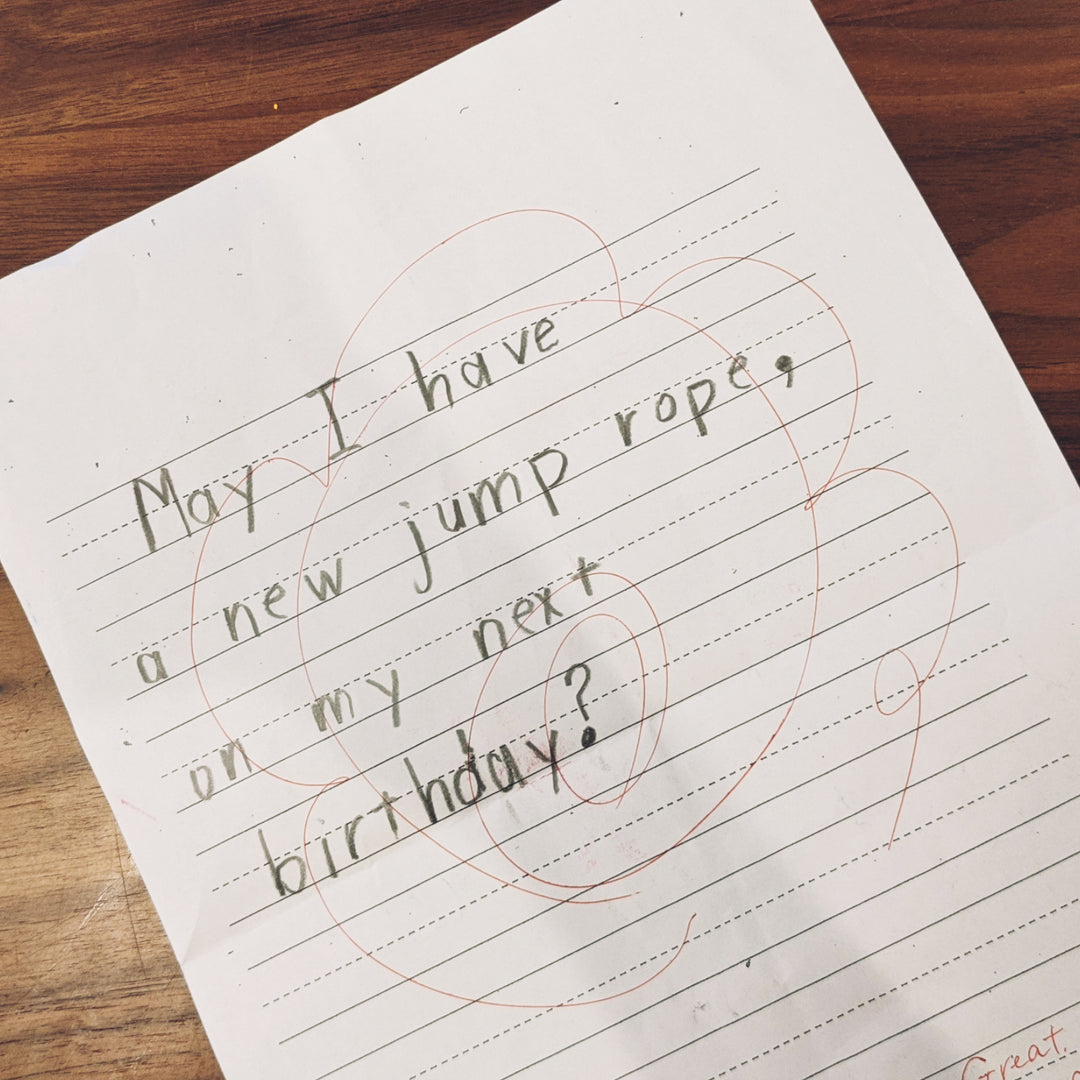 May I have
a new jump rope,
on my next
birthday?
Great.